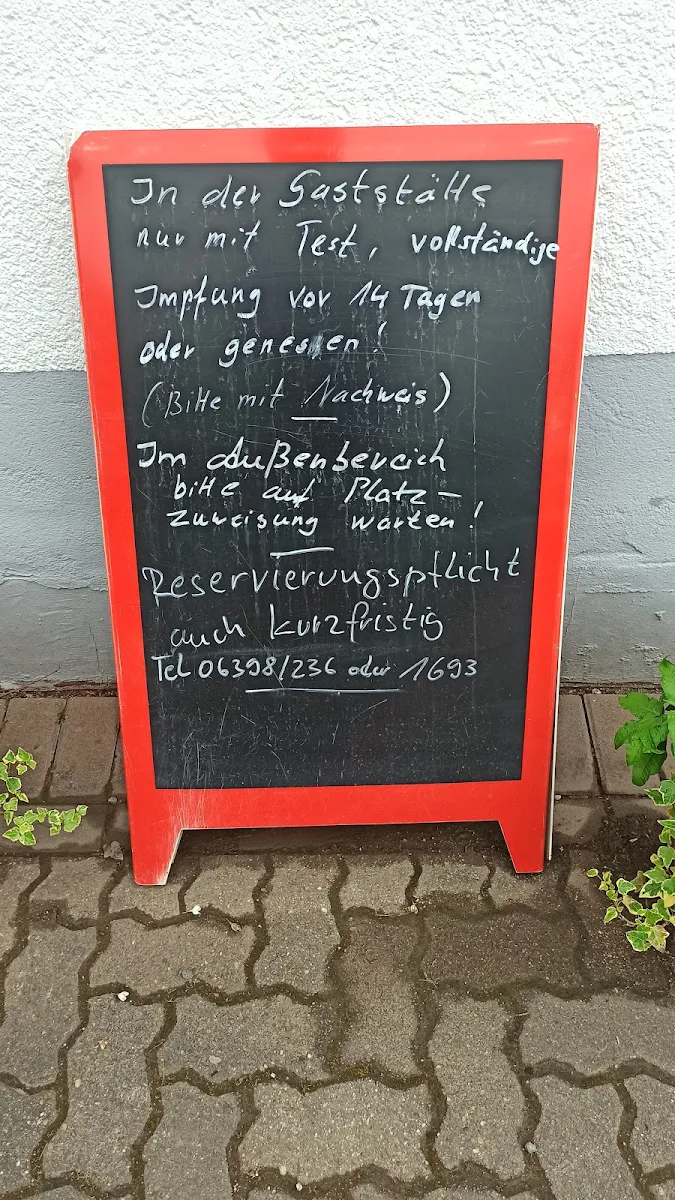 In der Gaststätte
nur mit Test, vollständige
Impfung vor 14 Tagen
oder genesen!
(Bitte mit Nachweis)
Im Außenbereich
bitte auf Platz-
zuweisung warten!
Reservierungspflicht
auch kurzfristig
Tel 06398/236 oder 1693